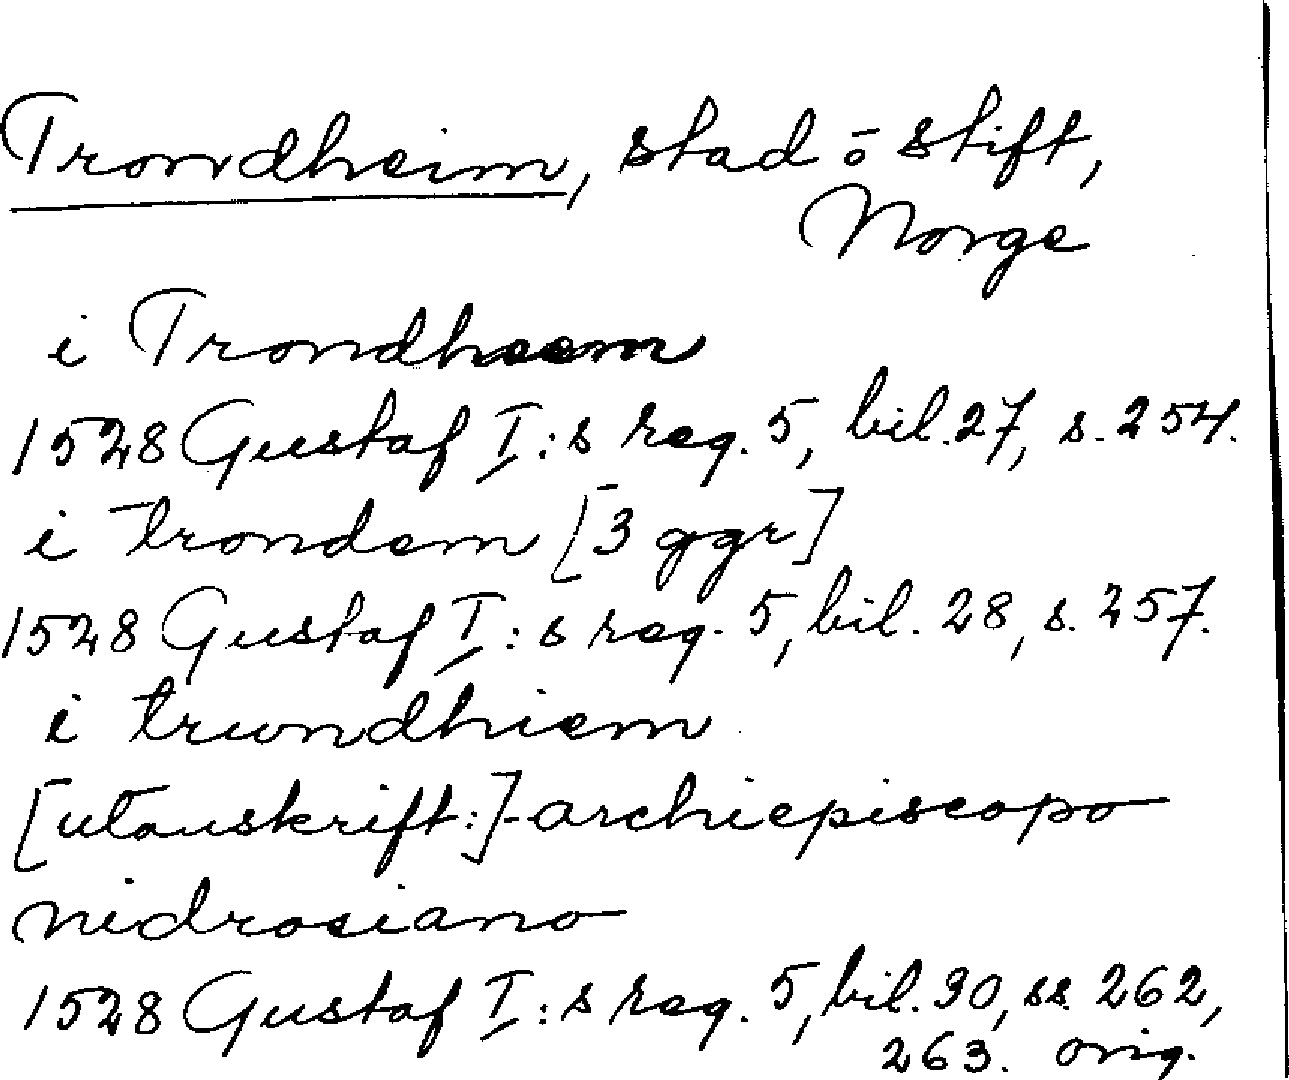 Trondheim, stad ō stift,
Norge
i Trondheem
1528 Gustaf I:s reg. 5, bil. 27, s. 254.
i trondem [3 ggr]
1528 Gustaf I:s reg. 5, bil. 28, s. 257.
i trundhiem
[utanskrift:] - archiepiscopo
nidrosiano
1528 Gustaf I:s reg. 5, bil. 30, ss. 262,
263. orig.